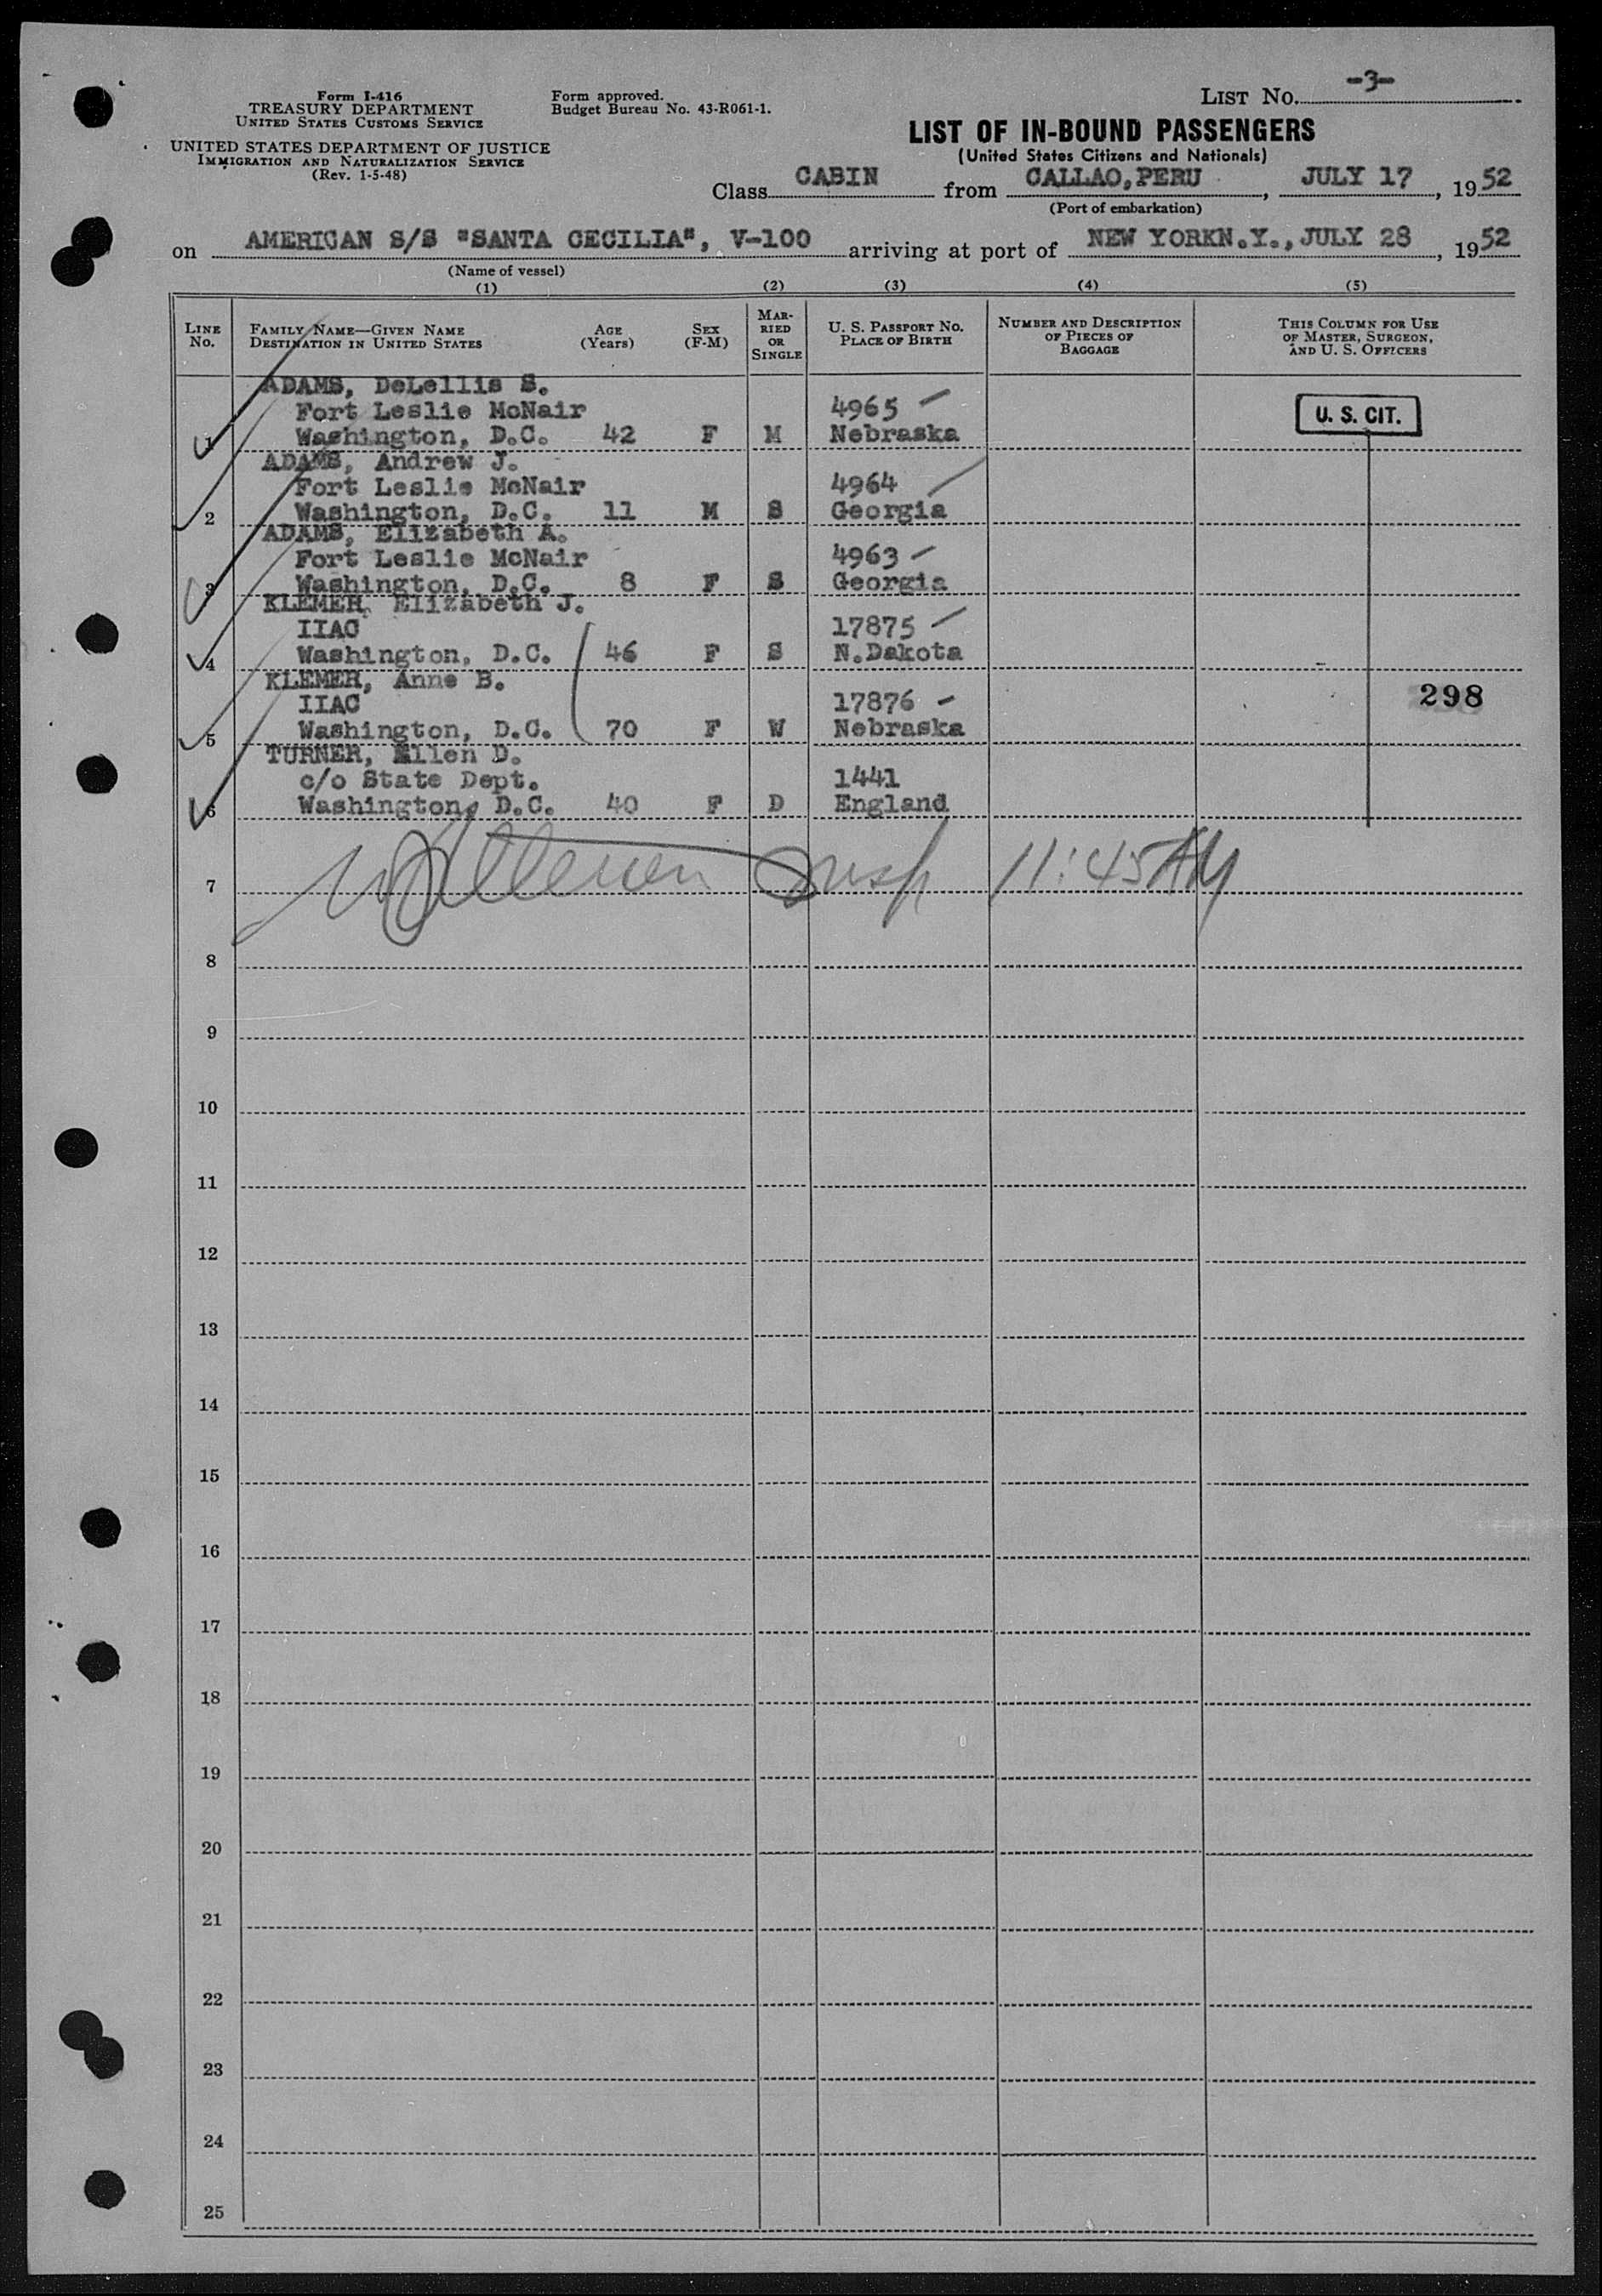 Form I-416
TREASURY DEPARTMENT
UNITED STATES CUSTOMS SERVICE
UNITED STATES DEPARTMENT OF JUSTICE
IMMIGRATION AND NATURALIZATION SERVICE
(Rev. 1-5-48)
Form approved.
Budget Bureau No. 43-R061-1.
LIST No. -3-
LIST OF IN-BOUND PASSENGERS
(United States Citizens and Nationals)
Class CABIN from CALLAO, PERU, JULY 17, 1952
(Port of embarkation)
on AMERICAN S/S "SANTA CECILIA", V-100 arriving at port of NEW YORKN.Y., JULY 28, 1952
(Name of vessel)
(1) (2) (3) (4) (5)
LINE No.
FAMILY NAME—GIVEN NAME
DESTINATION IN UNITED STATES
AGE (Years)
SEX (F-M)
MARRIED OR SINGLE
U. S. PASSPORT NO.
PLACE OF BIRTH
NUMBER AND DESCRIPTION OF PIECES OF BAGGAGE
THIS COLUMN FOR USE OF MASTER, SURGEON, AND U. S. OFFICERS
ADAMS, DeLellis S.
Fort Leslie McNair 4965 U. S. CIT.
1 Washington, D.C. 42 F M Nebraska
ADAMS, Andrew J.
Fort Leslie McNair 4964
2 Washington, D.C. 11 M S Georgia
ADAMS, Elizabeth A.
Fort Leslie McNair 4963
3 Washington, D.C. 8 F S Georgia
KLEMER, Elizabeth J.
IIAC 17875
4 Washington, D.C. 46 F S N.Dakota
KLEMER, Anne B.
IIAC 17876 298
5 Washington, D.C. 70 F W Nebraska
TURNER, Ellen D.
c/o State Dept. 1441
6 Washington, D.C. 40 F D England
7 Insp 11:45 AM
8
9
10
11
12
13
14
15
16
17
18
19
20
21
22
23
24
25